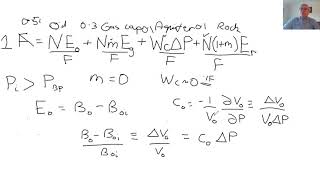 0.5 Oil 0.3 Gas cap Aquifer 0.1 Rock
1 = N E_o/F + N m E_g/F + W_c ΔP/F + N(1+m) E_r/F
P_i > P_BP m = 0 W_c = 0 if
E_o = B_o - B_oi C_o = -1/V_o ∂V_o/∂P = ΔV_o/V_oΔP
B_o - B_oi/B_oi = ΔV_o/V_o = C_o ΔP